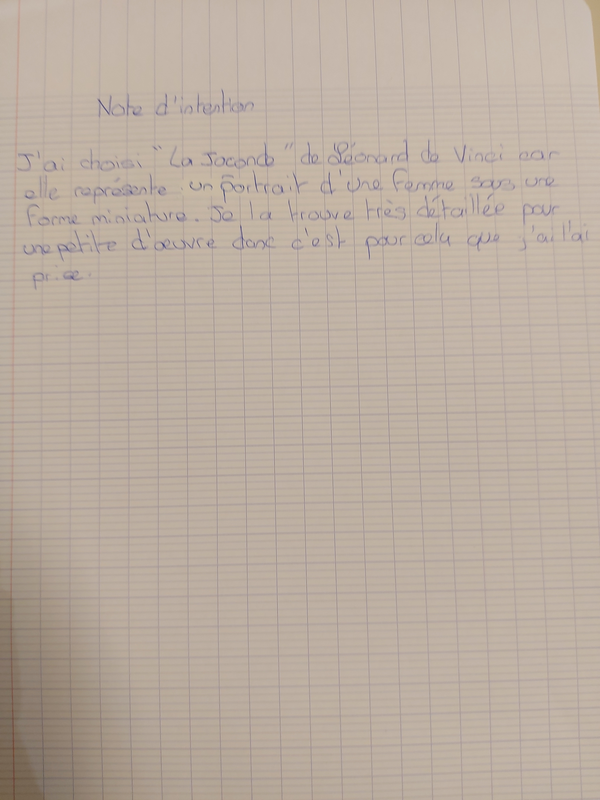 Note d'intention
J'ai choisi "La Joconde" de Léonard de Vinci car
elle représente un portrait d'une femme sous une
forme miniature. Je la trouve très détaillée pour
une petite d'œuvre donc c'est pour cela que j'ai l'ai
prise.